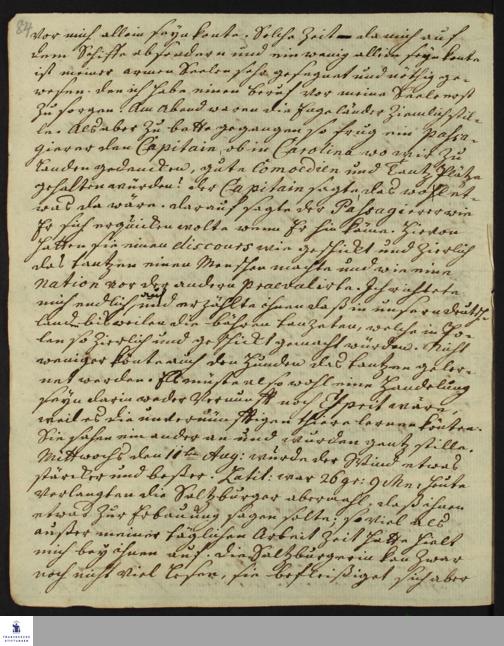 84
vor mich allein seyn konte. Solche Zeit da mich auf
dem Schiffe absondern und ein wenig allein seyn konte
ist meiner armen Seelen sehr gesegnet und nöthig ge-
wesen. den ich habe einen Beruf vor meine Seele erst
zu sorgen. Am Abend waren die Engeländer ziemlich stil-
le. Als aber zu bette gegangen so frug ein Passa-
gierer den Capitain, ob in Carolina, wo wir zu
landen gedencken, gute Comoedien und Tantz Plätze
gehalten würden? der Capitain sagte, daß wohl et-
was da wäre. darauf sagte der Passagierer wie
Er sich erquicken wolte wenn Er hin käme. Hievon
hatten sie einen discours wie geschickt und zierlich
das tantzen einen Menschen machte und wie eine
Nation vor der andern praevalirte. Ich richtete
mich endlich auch und erzählte ihnen daß in unsern Deutsch-
land bisweilen die bähren tantzeten, welche in Po-
len so zierlich und geschickt gemacht würden. Nicht
weniger könte auch den Hunden das tantzen geler-
net werden. Es müste also wohl eine Handelung
seyn darin weder Vernunfft noch Esprit wäre,
weil es die unvernünfftigen thiere lernen könten.
Sie sahen einander an und wurden gantz stille.
Mittwochs den 11th Aug: wurde der Wind etwas
stärcker und besser. Latit: war 26 gr: 9 Mi: heute
verlangten die Saltzburger abermahl, daß ihnen
etwas zur Erbauung sagen solte; so viel als
ausser meiner täglichen Arbeit Zeit hatte hielt
mich bey ihnen auf. die Saltzburgerin kan zwar
noch nicht viel lesen, sie befleißiget sich aber
FRANCKESCHE
STIFTUNGEN